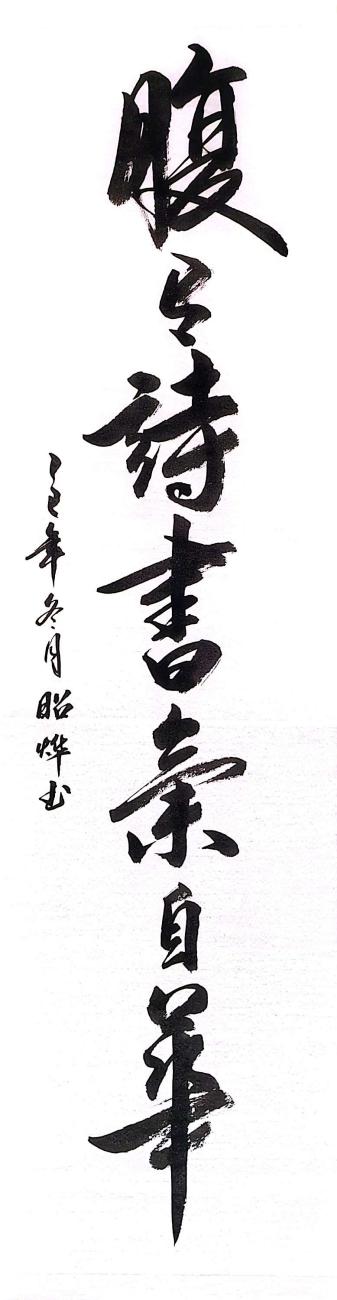 腹有詩書氣自華
乙巳年冬月昭烨书